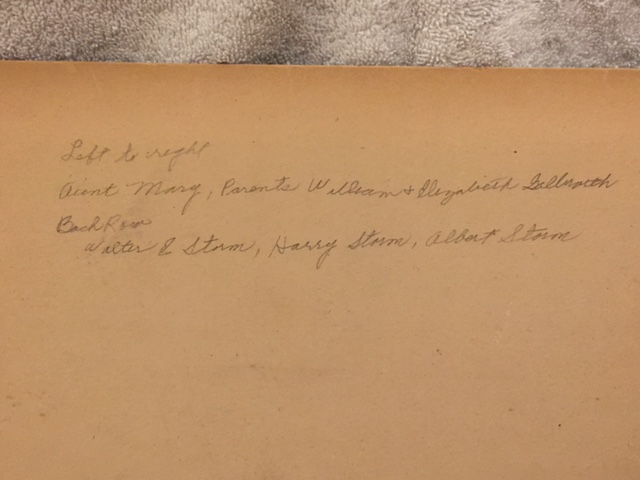 Left to right
Aunt Mary, Parents William + Elizabeth
Back Row
Walter E Storm, Harry Storm, Albert Storm